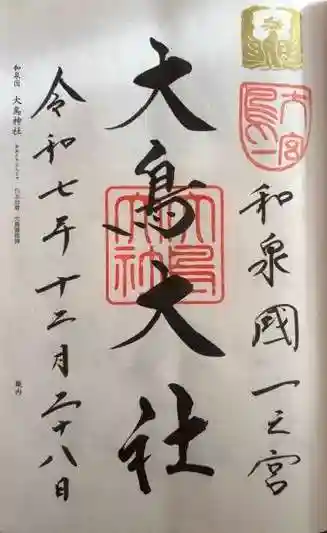 和泉國一之宮
大鳥大社
令和七年十二月二十八日
和泉国 大鳥神社